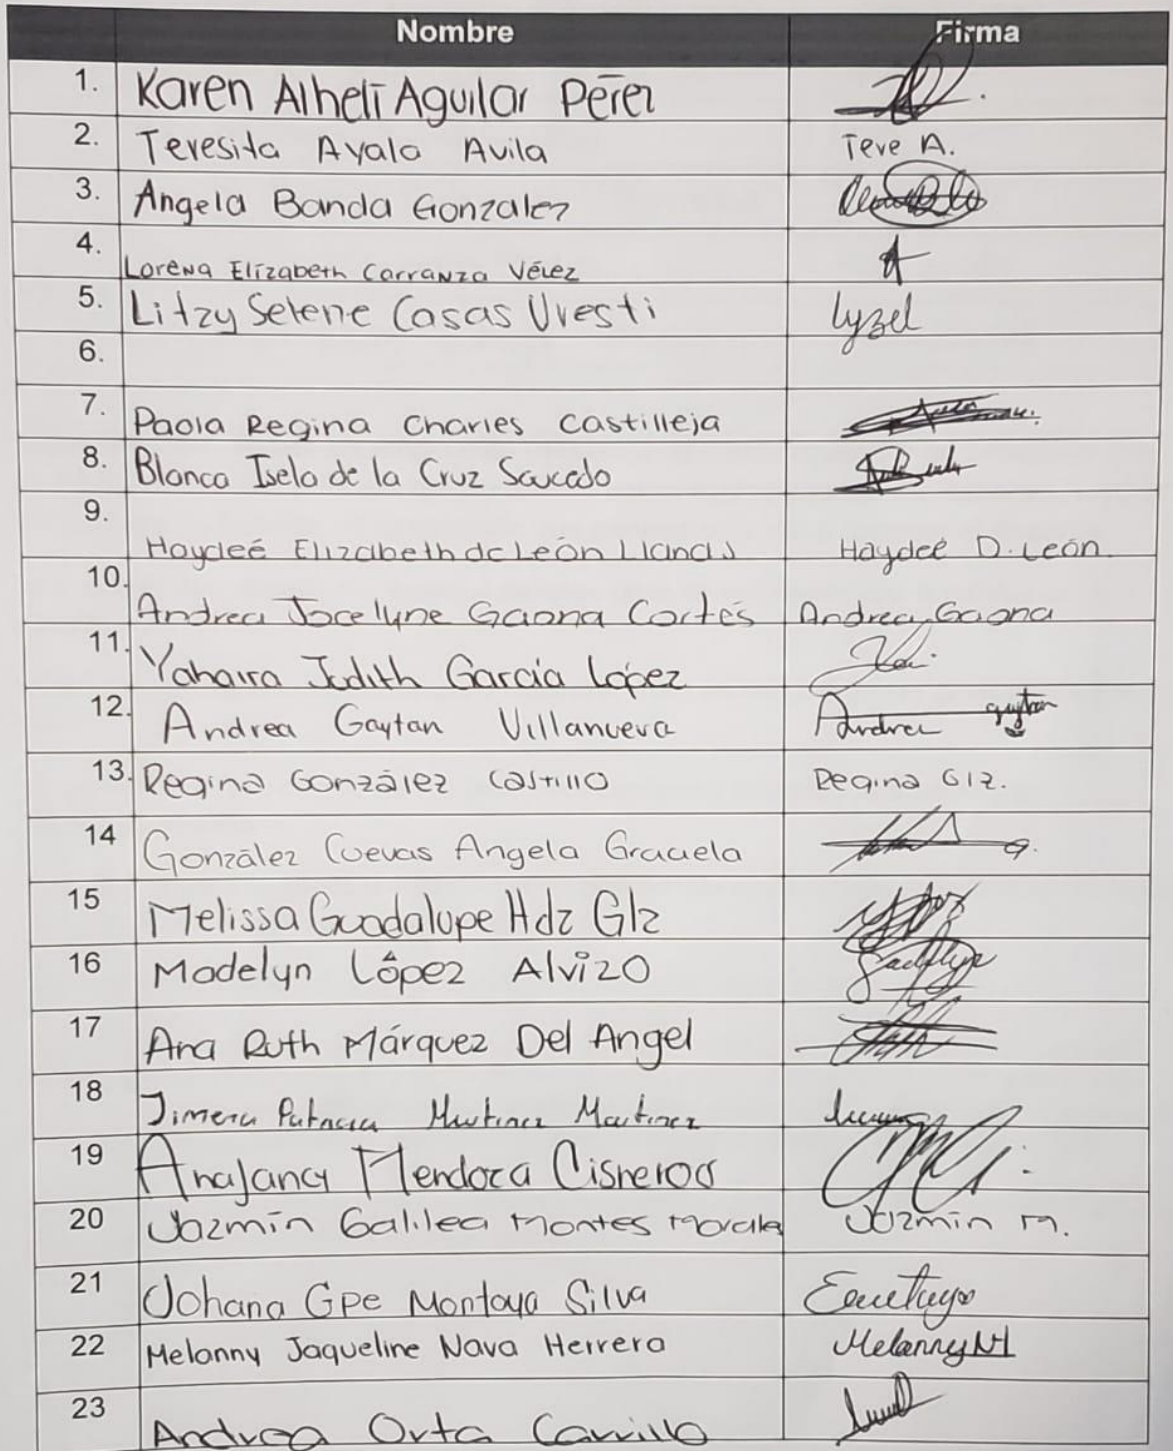 Nombre Firma
1. Karen Alhelí Aguilar Pérez
2. Teresita Ayala Avila Tere A.
3. Angela Banda Gonzalez
4. Lorena Elizabeth Carranza Vélez
5. Litzy Selene Casas Uresti lyzel
6.
7. Paola Regina Charles Castilleja
8. Blanca Isela de la Cruz Saucedo
9. Haydeé Elizabeth de León Llanas Haydeé D. León
10. Andrea Jocelyne Gaona Cortés Andrea Gaona
11. Yahaira Judith García López
12. Andrea Gaytan Villanueva Andrea gaytan
13. Regina González Castillo Regina Glz.
14 González Cuevas Angela Graciela
15 Melissa Guadalupe Hdz Glz
16 Madelyn López Alvizo
17 Ana Ruth Márquez Del Angel
18 Jimena Patricia Martinez Martinez
19 AnaJancy Mendoza Cisneros
20 Jazmín Galilea Montes Morales Jazmín M.
21 Johana Gpe Montoya Silva
22 Melanny Jaqueline Nava Herrera Melanny NH
23 Andrea Orta Carrillo